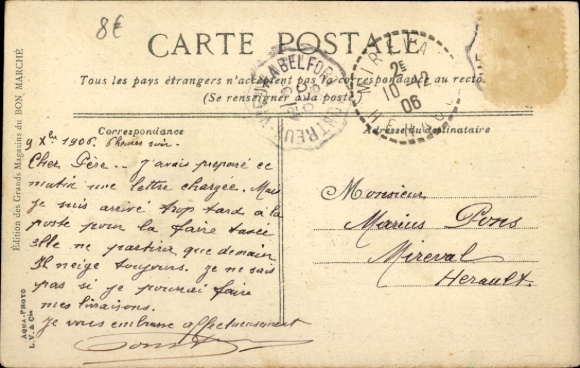 8€
CARTE POSTALE
Tous les pays étrangers n'acceptent pas la correspondance au recto
(Se renseigner à la poste)
Édition des Grands Magasins du BON MARCHÉ
AQUA-PHOTO
L. V. & Cie
Correspondance
Adresse du destinataire
9 Xbre 1906. 6 heures soir.
Cher Père.. J'avais préparé ce
matin une lettre chargée. Mais
je suis arrivé trop tard à la
poste pour la faire taxée
elle ne partira que demain
Il neige toujours. Je ne sais
pas si je pourrai faire
mes livraisons.
Je vous embrasse affectueusement
Monsieur
Marius Pons
Mireval
Herault.
MIREVAL
2E
10 -12
06
HERAULT
BELFORT